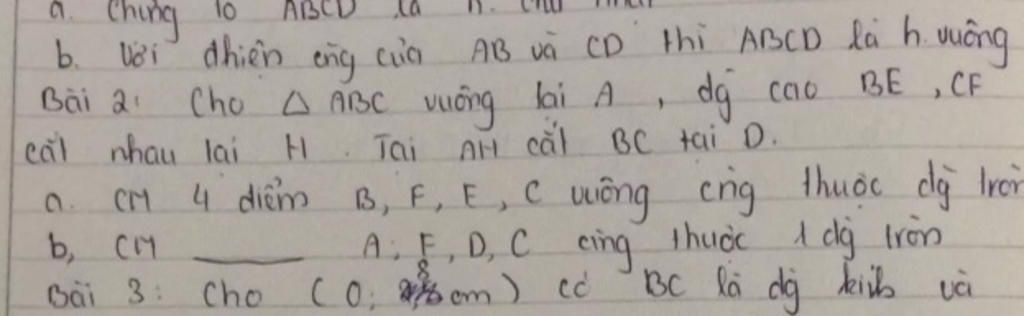 a. Chứng tỏ ABCD là h. chữ nhật
b. Với đhiện của AB và CD thì ABCD là h. vuông
Bài 2: Cho △ ABC vuông tại A, dg̃ cao BE, CF
cắt nhau tại H. Tai AH cắt BC tại D.
a. CM 4 điểm B, F, E, C cùng thuộc dg̃ tròn
b, CM ____ A, F, D, C cùng thuộc 1 dg̃ tròn
Bài 3: Cho (O; 8 cm) có BC là dg̃ kính và